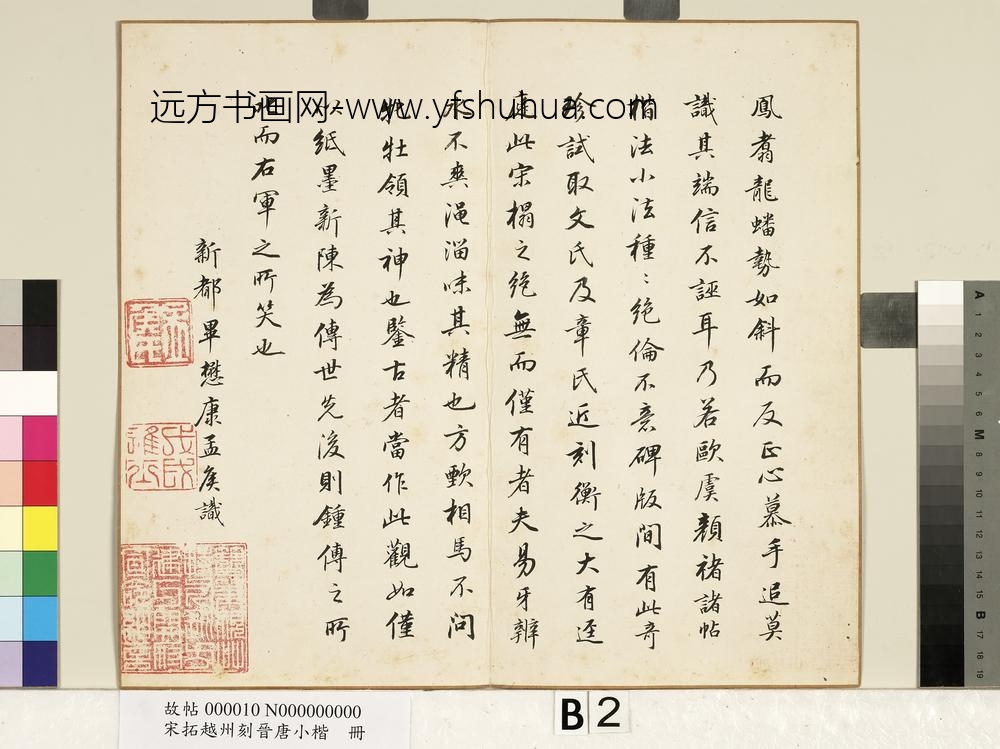 鳳翥龍蟠勢如斜而反正心慕手追莫
識其端信不誣耳乃若歐虞顏褚諸帖
楷法小法種〻絕倫不意碑版間有此奇
珍試取文氏及章氏近刻衡之大有逕
庭此宋榻之絕無而僅有者夫易牙辨
水不爽澠淄味其精也方歅相馬不問
牝牡領其神也鑒古者當作此觀如僅
以紙墨新陳為傳世先後則鍾傅之所
嗤而右軍之所笑也
新都畢懋康孟矦識
远方书画网-www.yfshuhua.com
故帖 000010 N000000000
宋拓越州刻晉唐小楷 冊
B 2
A 1 2 3 4 5 6 M 8 9 10 11 12 13 14 15 B 17 18 19